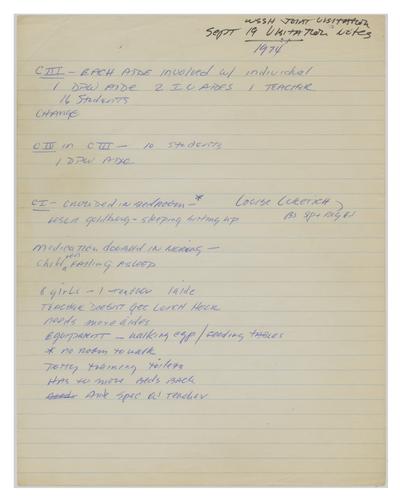 WSSH JOINT VISITATION
Sept 19 Visitation Notes
1974
CIII - EACH AIDE involved w/ individual
1 DPW AIDE 2 I U AIDES 1 TEACHER
16 Students
CHANGE
CIV in CIII - 10 students
1 DPW AIDE
CI - CROWDED IN BEDROOM - *
Louise
BS Sp Ed
goldberg - sleeping sitting up
Medication in -
Children falling asleep
8 girls - 1 teacher 1 aide
TEACHER DOESN'T GET LUNCH HOUR
needs more aides
EQUIPMENT - walking eqp / feeding TABLES
* no room to walk
Potty training toilets
HAS to move Beds BACK
Ask Spec Ed Teacher